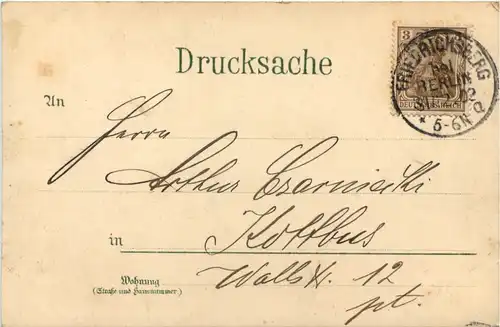 Drucksache
3
FRIEDRICHSBERG
BERLIN
* 5-6N
An
Herrn
Arthur Czarniecki
in Kottbus
Wohnung
(Straße und Hausnummer.)
Wallstr. 12
pt.